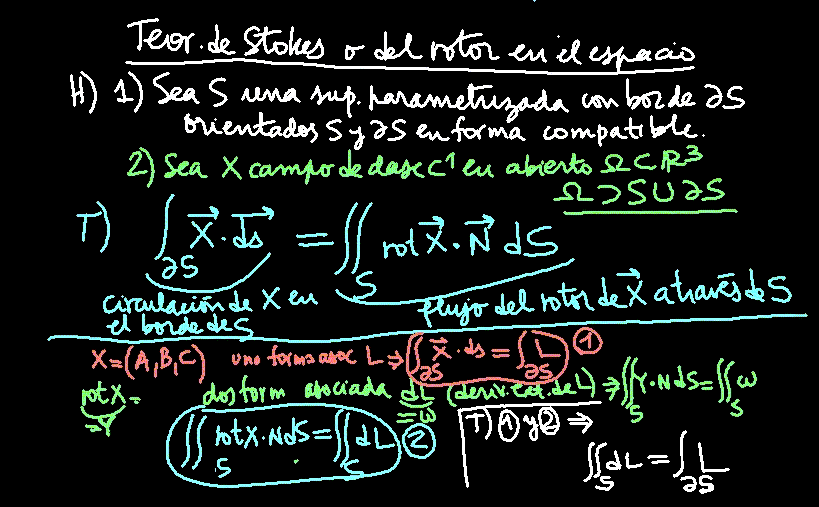 Teor. de Stokes o del rotor en el espacio
H) 1) Sea S una sup. parametrizada con borde ∂S
orientados S y ∂S en forma compatible.
2) Sea X campo de clase C¹ en abierto Ω⊂R³
Ω⊃S∪∂S
T) ∫_∂S X⃗·ds⃗ = ∬_S rot X⃗·N⃗ dS
circulación de X en el borde de S
flujo del rotor de X⃗ a través de S
X=(A,B,C) uno forma asoc L ⇒ ∫_∂S X⃗·ds = ∫_∂S L ①
rot X = dos form asociada dL (deriv. ext. de L) ⇒ ∬_S Y·N dS = ∬_S ω
=Y =ω
∬_S rot X·N dS = ∬_S dL ② T) ① y ② ⇒
∬_S dL = ∫_∂S L